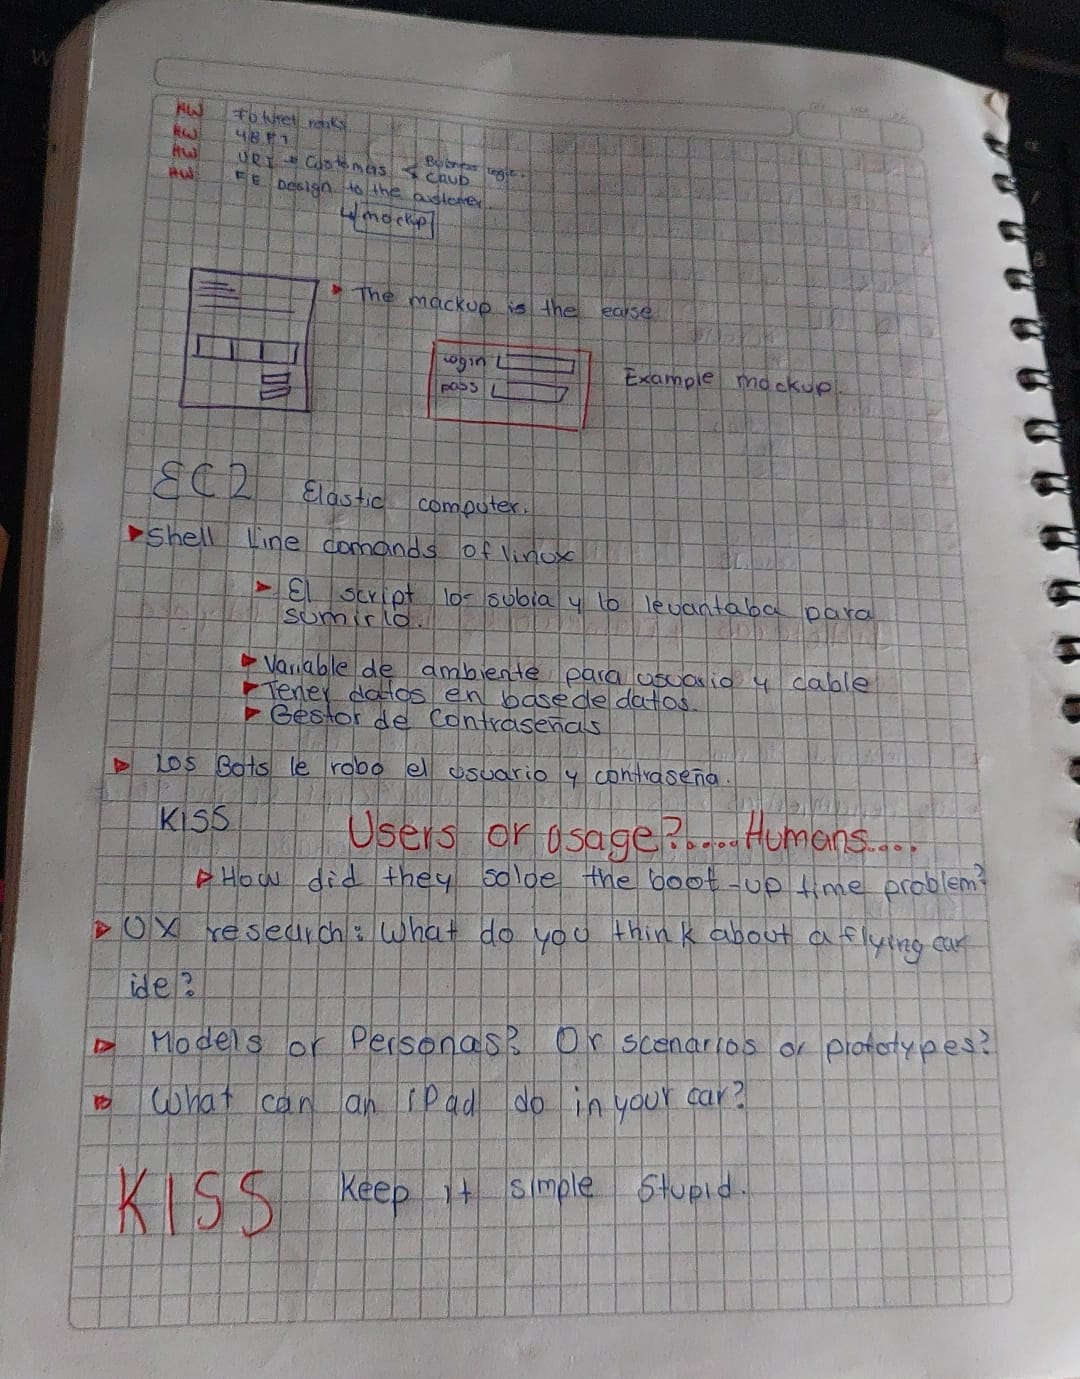 HW
HW
HW URI → Customers Business logic.
CRUD
HW FE Design to the customer.
↳ mockup
▸ The mackup is the earse
Login
pass
Example mockup.
EC2 Elastic computer.
▸ Shell Line comands of linux
▸ El script lo subia y lo levantaba para
sumirlo.
▸ Variable de ambiente para usuario y cable
▸ Tener datos en base de datos.
▸ Gestor de contraseñas
▸ Los Bots le robo el usuario y contraseña.
KISS Users or usage?.....Humans....
▸ How did they solve the boot-up time problem?
▸ UX research: What do you think about a flying car
ide?
▸ Models or Personas? Or scenarios or prototypes?
▸ What can an iPad do in your car?
KISS Keep it simple stupid.